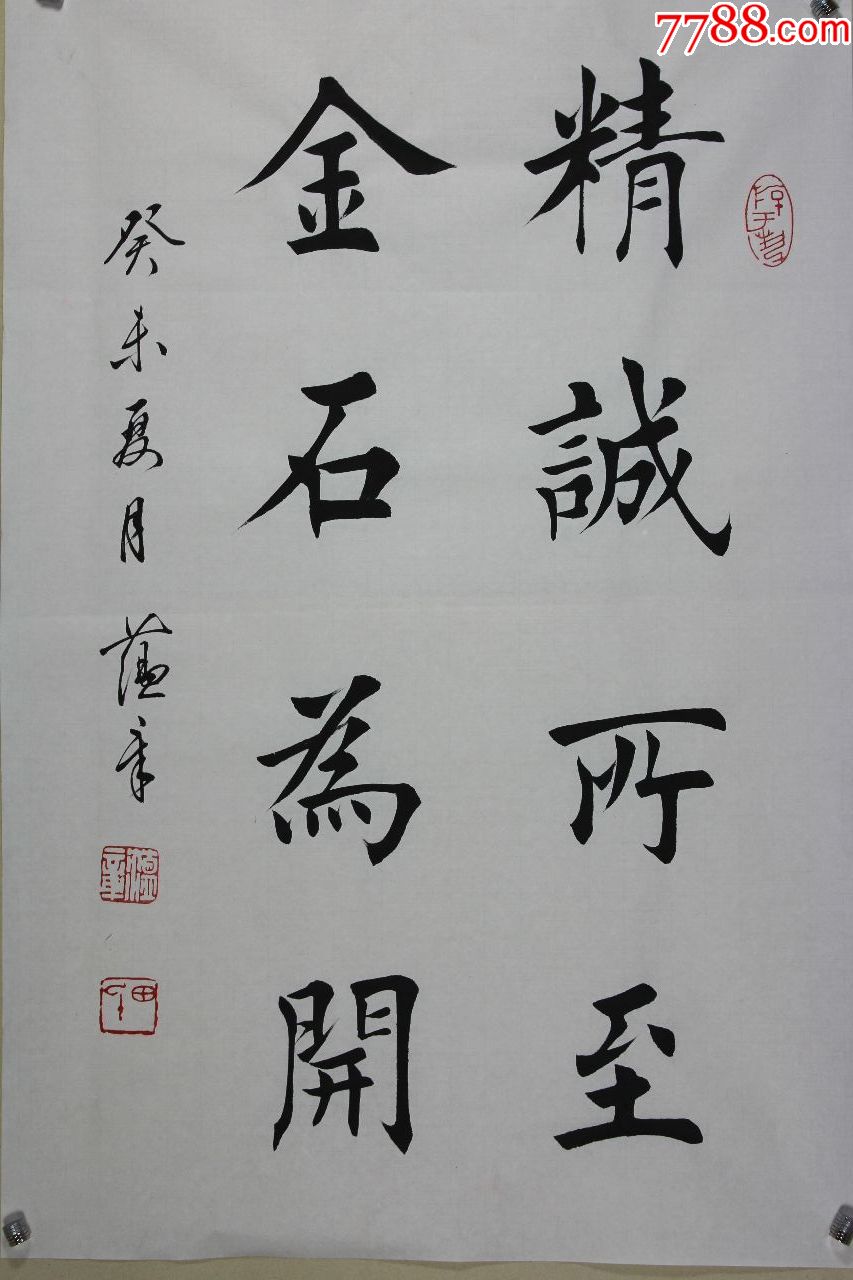 7788.com
精誠所至
金石為開
癸未夏月蘊章